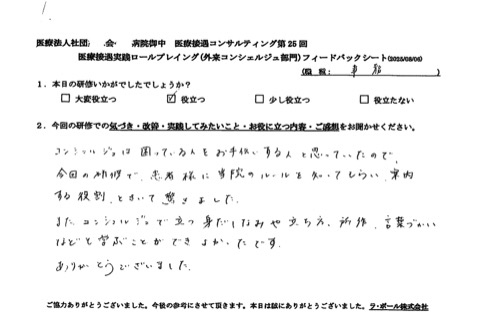 1.
医療法人社団 会 病院御中 医療接遇コンサルティング第25回
医療接遇実践ロールプレイング(外来コンシェルジュ部門)フィードバックシート(2025/08/06)
(職種: 事務 )
1.本日の研修いかがでしたでしょうか?
□ 大変役立つ ☑ 役立つ □ 少し役立つ □ 役立たない
2.今回の研修での気づき・改善・実践してみたいこと・お役に立つ内容・ご感想をお聞かせください。
コンシェルジュは困っている人をお手伝いする人と思っていたので、
今回の研修で、患者様に当院のルールを知ってもらい、案内
する役割、ときいて驚きました。
また コンシェルジュで立つ身だしなみや立ち方、所作、言葉づかい
などと学ぶことができよかったです。
ありがとうございました。
ご協力ありがとうございました。今後の参考にさせて頂きます。本日は誠にありがとうございました。ラ・ポール株式会社